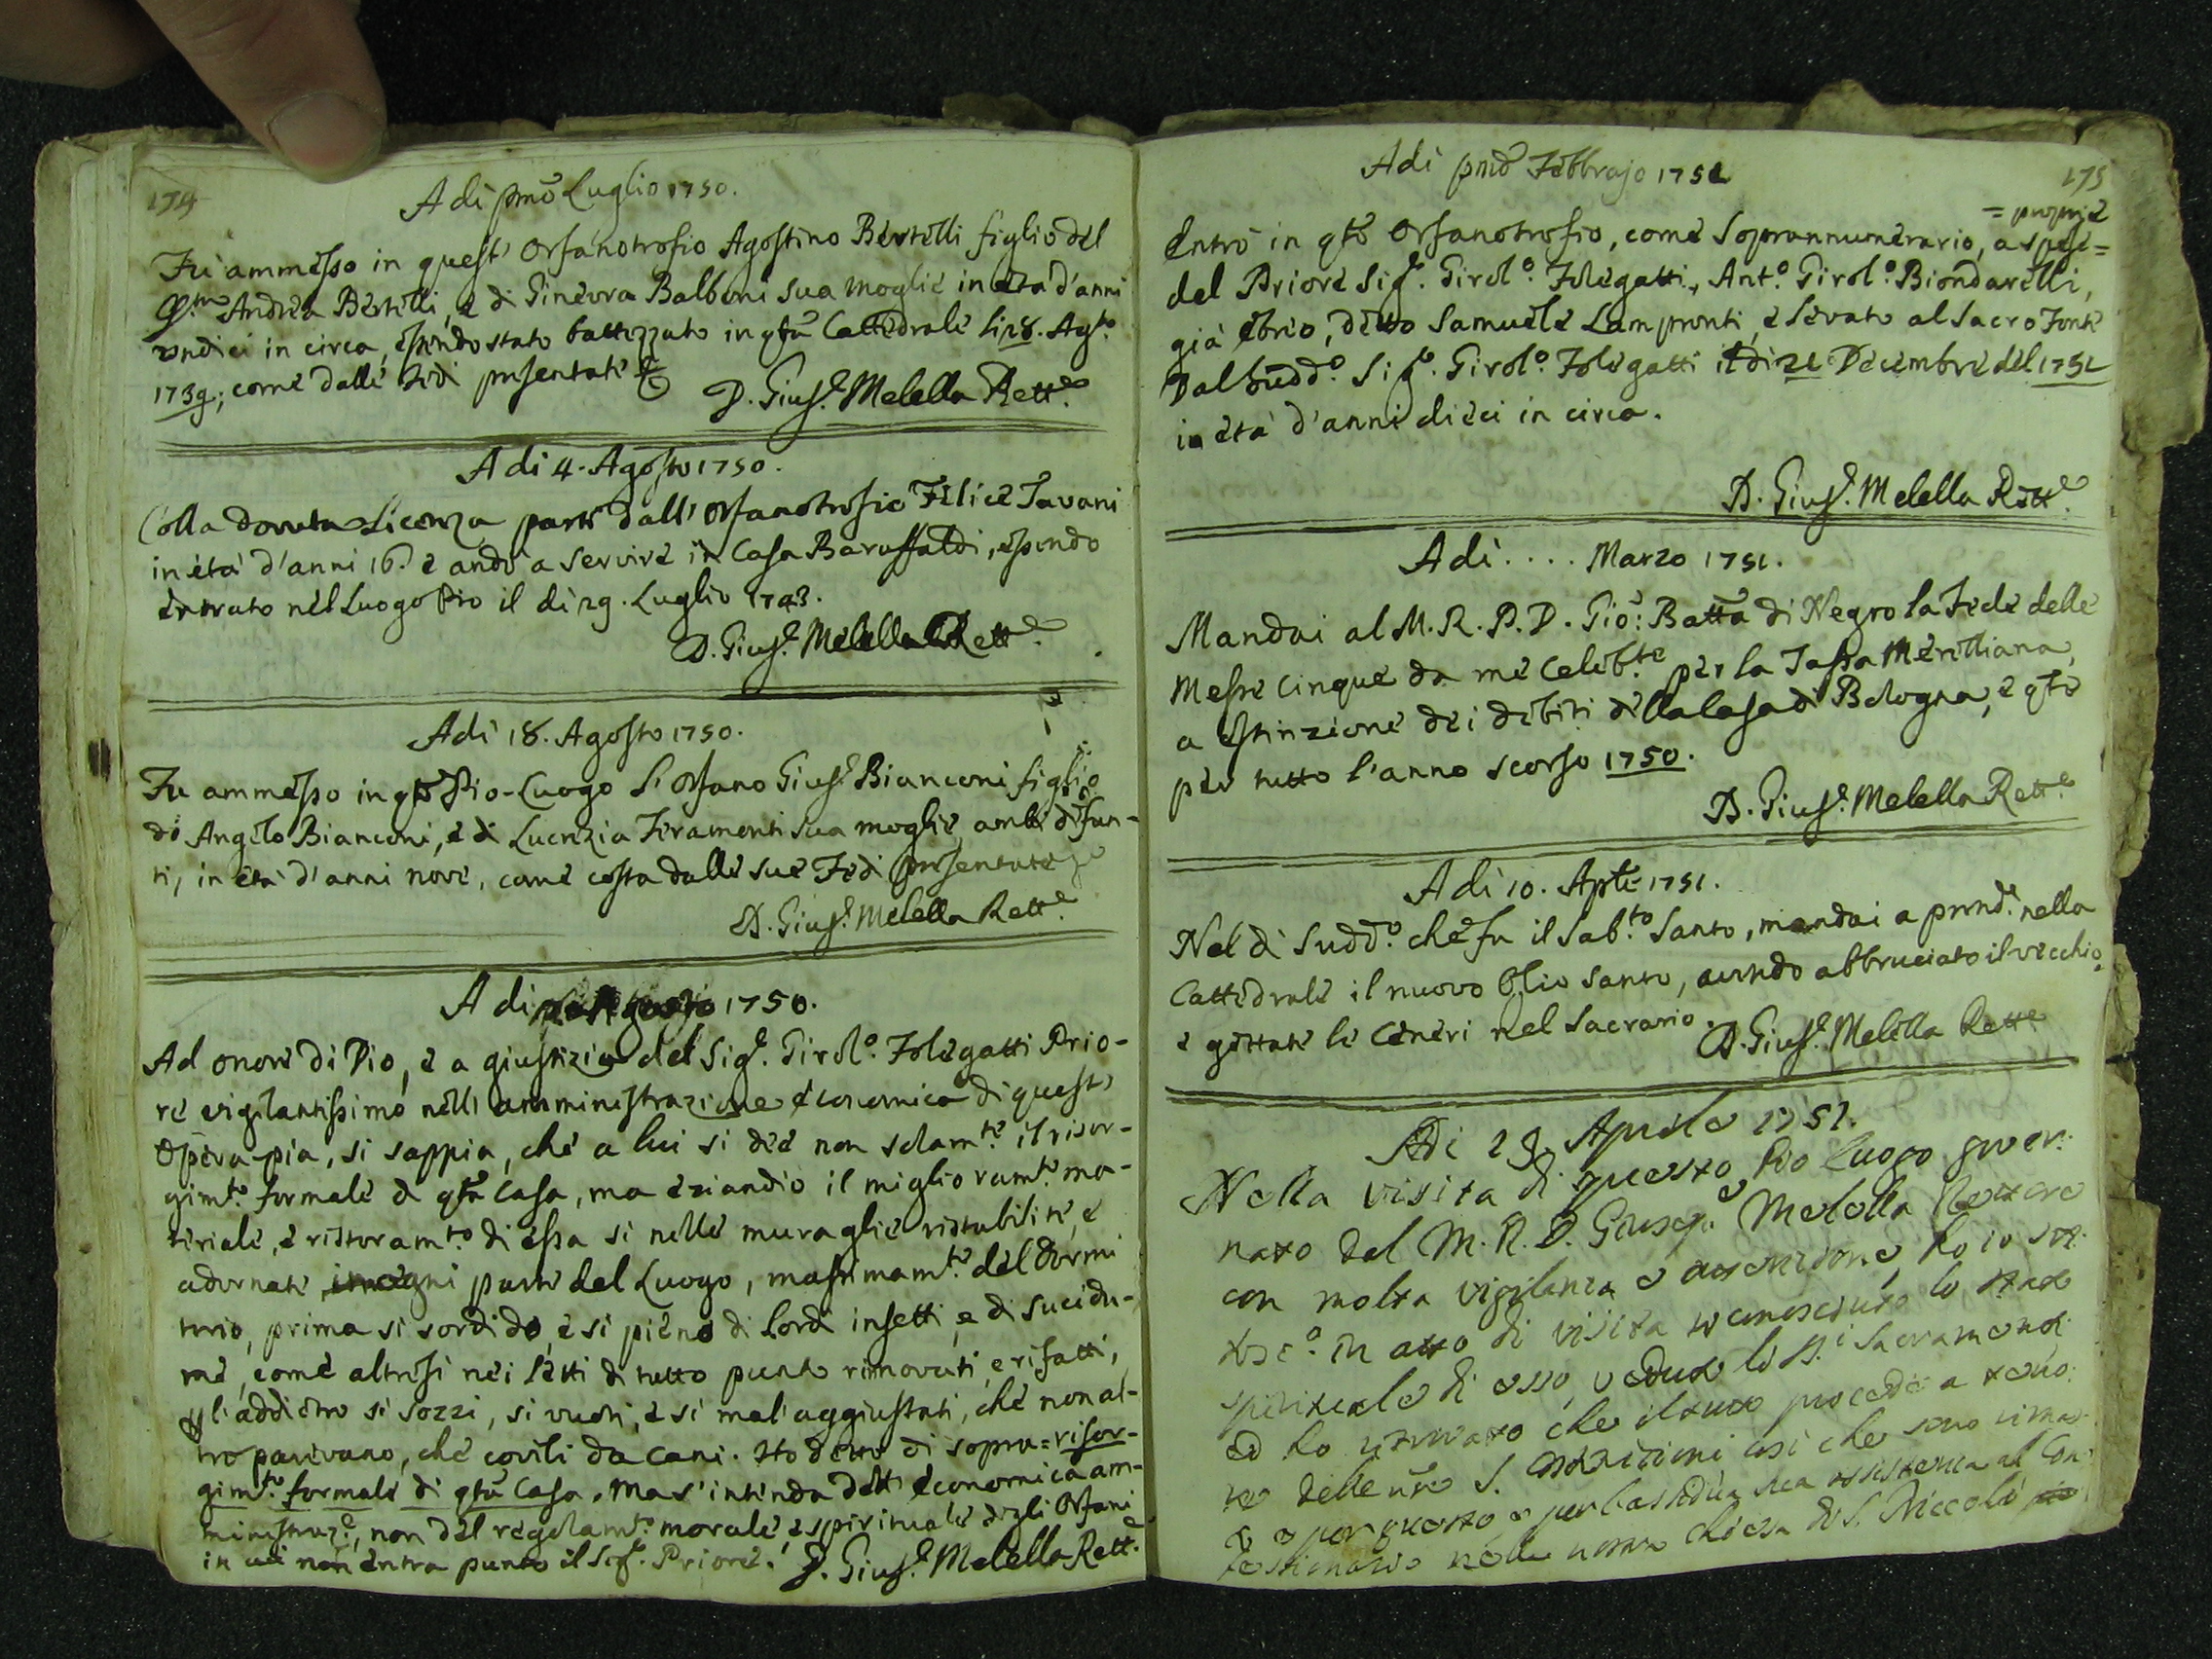 174
Adi pmo Luglio 1750.
Fù ammesso in quest' Orfanotrofio Agostino Bertelli figlio del
qm Andrea Bertelli, e di Ginevra Balboni sua moglie in età d'anni
undici in circa, essendo stato battezzato in qta Cattedrale li 28. Agto
1739; come dalle Fedi presentate
D. Gius.e Melella Rett.e
Adi 4. Agosto 1750.
Colla dovuta Licenza partì dall' Orfanotrofio Felice Tavani
in età d'anni 16. e andò a servire in Casa Baruffaldi, essendo
entrato nel Luogo Pio il di 29. Luglio 1743.
D. Gius.e Melella Rett.e
Adi 18. Agosto 1750.
Fu ammesso in qto Pio-Luogo l'Orfano Gius.e Bianconi figlio
di Angelo Bianconi, e di Lucrezia Feramonti sua moglie ambi defun-
ti, in età d'anni nove, come costa dalle sue Fedi presentate
D. Gius.e Melella Rett.e
Adi 1750.
Ad onore di Dio, e a giustizia del Sig.e Girol.o Folegatti Prio-
re vigilantissimo nell' amministrazione economica di quest'
Opera-pia, si sappia, che a lui si deè non solam.te il risor-
gim.to formale di qta Casa, ma eziandio il miglioram.to ma-
teriale, e ristoram.to di essa si nelle muraglie ristabilite, e
adornate in ogni parte del Luogo, massimam.te del Dormi
torio, prima si sordido, e si pieno di lordi insetti, e di sucidu-
me, come altresi nei letti di tutto punto rinnovati, e rifatti,
per l'addietro si sozzi, si vuoti, e si mal' aggiustati, che non al-
tro parevano, che covili da cani. Ho detto di sopra = risor-
gim.to formale di qta Casa. Ma s'intenda dell' economica am-
ministraz.e, non del regolam.to morale, e spirituale degli Orfani
in cui non entra punto il Sig.e Priore.
D. Gius.e Melella Rett.e
175
Adi pmo Febbrajo 1751
= proprie
Entrò in qto Orfanotrofio, come Soprannumerario, a spese=
del Priore Sig.e Girol.o Folegatti, Ant.o Girol.o Biondarelli,
già Ebreo, detto Samuele Lampronti, e levato al Sacro Fonte
dal Sudd.o Sig.e Girol.o Folegatti il di 21 Decembre del 1751
in età d'anni dieci in circa.
D. Gius.e Melella Rett.e
Adi .... Marzo 1751.
Mandai al M. R. P. D. Gio: Batta di Negro la Fede delle
Messe cinque da me Celeb.te per la Tassa Merelliana,
a estinzione dei debiti della Casa di Bologna, e qto
per tutto l'anno scorso 1750.
D. Gius.e Melella Rett.e
Adi 10. Aple 1751.
Nel di Sudd.o che fu il Sab.to Santo, mandai a prend.e nella
Cattedrale il nuovo Olio Santo, avendo abbruciato il vecchio,
e gettate le Ceneri nel Sacrario.
D. Gius.e Melella Rett.e
Adi 29 Aprile 1751.
Nella visita di questo Pio Luogo gover-
nato dal M. R. D. Giusep.e Melella Rettore
con molta vigilanza e attenzione, ho io sot-
tosc.o in atto di visita riconosciuto lo stato
spirituale di esso, vedute li SS.i Sacramenti
ed ho ritrovato che il tutto procede a teno-
re delle nre S. Costitutioni così che sono rima-
e per questo, e per l'assidua sua assistenza al Con-
fessionario nella nostra chiesa di S. Niccolò